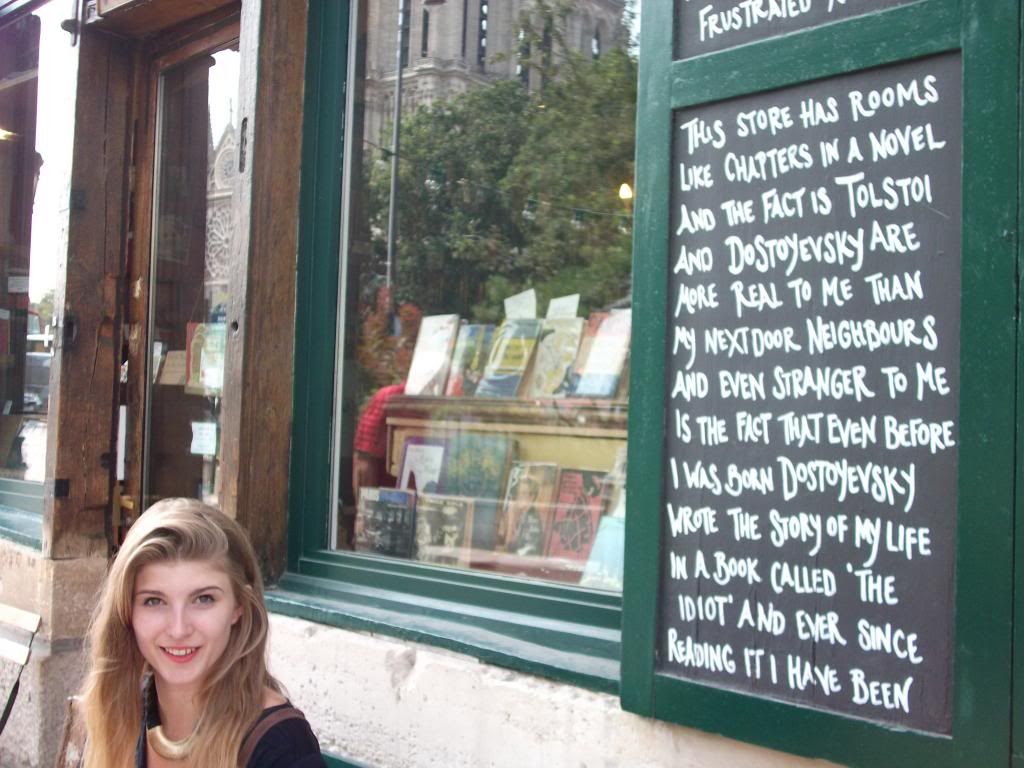 FRUSTRATED
THIS STORE HAS ROOMS
LIKE CHAPTERS IN A NOVEL
AND THE FACT IS TOLSTOI
AND DOSTOYEVSKY ARE
MORE REAL TO ME THAN
MY NEXT DOOR NEIGHBOURS
AND EVEN STRANGER TO ME
IS THE FACT THAT EVEN BEFORE
I WAS BORN DOSTOYEVSKY
WROTE THE STORY OF MY LIFE
IN A BOOK CALLED 'THE
IDIOT' AND EVER SINCE
READING IT I HAVE BEEN
PARIS